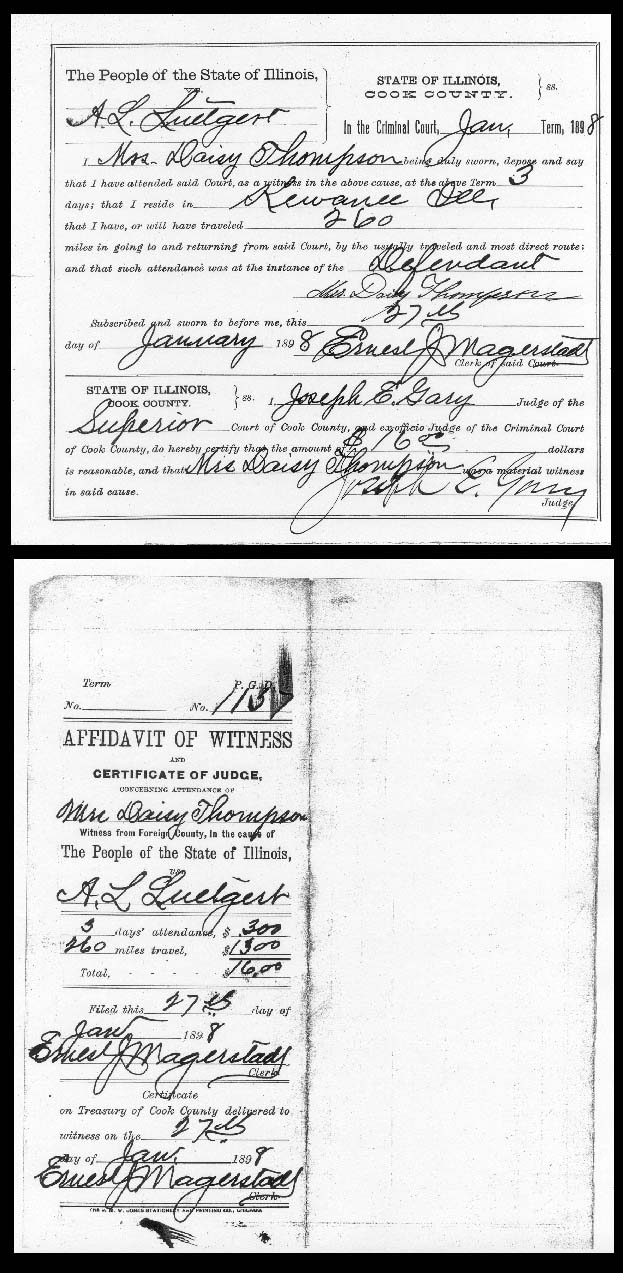 The People of the State of Illinois,
vs.
A. L. Luetgert
STATE OF ILLINOIS,
COOK COUNTY.
} ss.
In the Criminal Court, Jan, Term, 1898
I Mrs. Daisy Thompson being duly sworn, depose and say
that I have attended said Court, as a witness in the above cause, at the above Term 3
days; that I reside in Kewanee Ill,
that I have, or will have traveled 260
miles in going to and returning from said Court, by the usually traveled and most direct route;
and that such attendance was at the instance of the Defendant
Mrs. Daisy Thompson
Subscribed and sworn to before me, this 27th
day of January 1898 Ernest J Magerstadt
Clerk of said Court.
STATE OF ILLINOIS,
COOK COUNTY.
} ss. I, Joseph E. Gary Judge of the
Superior Court of Cook County, and ex officio Judge of the Criminal Court
of Cook County, do hereby certify that the amount of $16.00 dollars
is reasonable, and that Mrs Daisy Thompson was a material witness
in said cause. Joseph E. Gary
Judge
Term P. G. D.
No. No. 113
AFFIDAVIT OF WITNESS
AND
CERTIFICATE OF JUDGE,
CONCERNING ATTENDANCE OF
Mrs Daisy Thompson
Witness from Foreign County, In the cause of
The People of the State of Illinois,
vs.
A. L Luetgert
3 days' attendance, $ 3.00
260 miles travel, $ 13.00
Total, - - - - $ 16.00
Filed this 27th day of
Jan. 1898
Ernest J Magerstadt
Clerk
Certificate
on Treasury of Cook County delivered to
witness on the 27th
day of Jan. 1898
Ernest J Magerstadt
Clerk
JONES STATIONERY AND PRINTING CO., CHICAGO